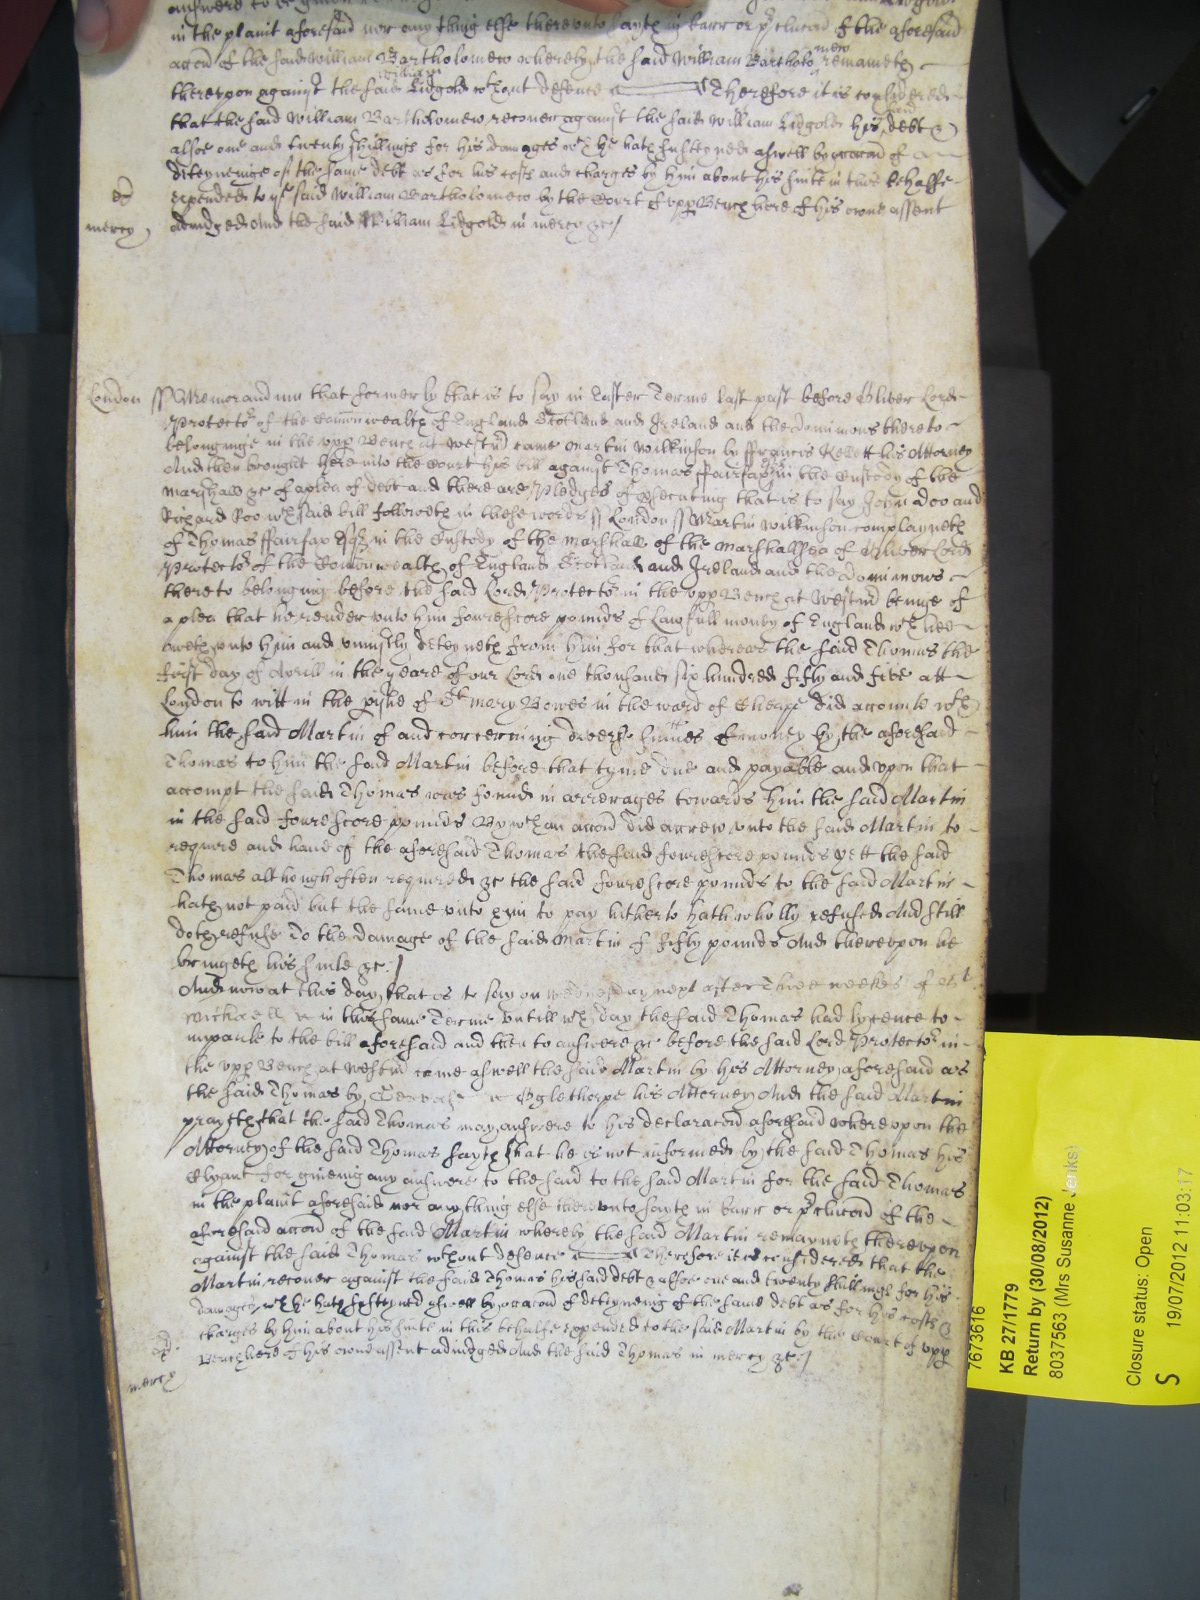 in the plaint aforesaid nor any thing else thereunto sayth in barr or p'clucõn of the aforesaid
accõn of the said William Bartholomew whereby the said William Bartholomew remaineth
thereupon against the said William Lidgold wthout defence Therefore it is considered
that the said William Bartholomew recover against the said William Lidgold his said debt &
alsoe one and twenty shillings for his damages wch he hath susteyned aswell by occacõn of
deteyneinge of the same debt as for his costs and charges by him about his suite in this behalfe
expended to ye said William Bartholomew by the Court of upp Bench here of his owne assent
mercy adiudged And the said William Lidgold in mercy &c /
London ss Memorandum that formerly that is to say in Easter Terme last past before Oliver Lord
Protector of the Comonwealth of England Scotland and Ireland and the dominions thereto
belonginge in the upp Bench at Westm̃ came Martin Wilkinson by ffrancis his Attorney
And then brought here into the Court his bill against Thomas ffairfax Esqr in the Custody of the
Marshall &c of a plea of debt and there are pledges of p'secuting that is to say John Doo and
Richard Roo wch said bill followeth in these words ss London ss Martin Wilkinson complayneth
of Thomas ffairfax Esqr in the Custody of the marshall of the Marshallsea of Oliver Lord
Protector of the Comonwealth of England Scotland and Ireland and the Dominions
thereto belonging before the said Lord Protector in the upp Bench at Westm̃ beinge of
a plea that he render unto him fourescore pounds of lawfull money of England wch hee
oweth unto him and uniustly deteyneth from him for that whereas the said Thomas the
first day of Aprill in the yeare of our Lord one thousand six hundred fifty and five att
London to witt in the pishe of St Mary Bowes in the ward of Cheape did accounte wth
him the said Martin of and concerning diverse summes of money by the aforesaid
Thomas to him the said Martin before that tyme due and payable and upon that
accompt the said Thomas was found in arrerages towards him the said Martin
in the said fourescore pounds By wch an accõn did accrew unto the said Martin to
require and have of the aforesaid Thomas the said fourescore pounds yett the said
Thomas although often required &c the said fourescore pounds to the said Martin
hath not paid but the same unto him to pay hitherto hath wholly refused And still
doth refuse To the damage of the said Martin of fifty pounds And thereupon he
bringeth his suite &c /
And now at this day that is to say on Wednesday next after Three weekes of st
Michaell in this same Terme untill wch day the said Thomas had lycence to
imparle to the bill aforesaid and then to answere &c before the said Lord Protector in
the upp Bench at Westm̃ came aswell the said Martin by his Attorney aforesaid as
the said Thomas by Oglethorpe his Attorney And the said Martin
prayeth that the said Thomas may answere to his declaracõn aforesaid whereupon the
Attorney of the said Thomas sayth that he is not informed by the said Thomas his
Clyant for giveing any answere to the said to the said Martin for the said Thomas
in the plaint aforesaid nor any thing else thereunto sayth in barr or p'clucõn of the
aforesaid accõn of the said Martin whereby the said Martin remayneth thereupon
against the said Thomas wthout defence Therefore it is considered that the
Martin recover against the said Thomas his said debt & alsoe one and twenty shillings for his
damages wch he hath susteyned aswell by occacõn of deteyneing of the same debt as for his costs &
charges by him about his suite in this behalfe expended to the said Martin by the Court of upp
Bench here of his owne assent adiudged And the said Thomas in mercy &c /
mercy
7673616
KB 27/1779
Return by (30/08/2012)
8037563 (Mrs Susanne Jenks)
Closure status: Open
S 19/07/2012 11:03:17